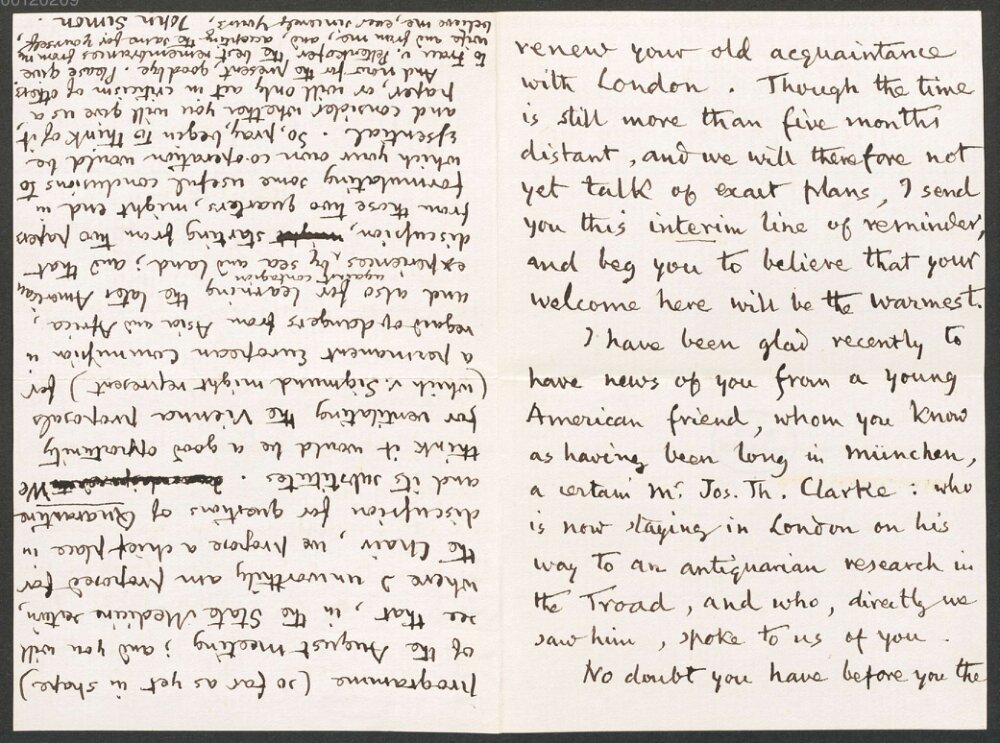 renew your old acquaintance
with London. Though the time
is still more than five months
distant, and we will therefore not
yet talk of exact plans, I send
you this interim line of reminder,
and beg you to believe that your
welcome here will be the warmest.
I have been glad recently to
have news of you from a young
American friend, whom you know
as having been long in München,
a certain Mr. Jos. Th. Clarke: who
is now staying in London on his
way to an antiquarian research in
the Troad, and who, directly we
saw him, spoke to us of you.
No doubt you have before you the
programme (so far as yet in shape)
of the August meeting; and you will
see that, in the State Medicine section,
where I unworthily am proposed for
the Chair, we propose a chief place in
discussion for questions of Quarantine
and its substitutes. We
think it would be a good opportunity
for ventilating the Vienna proposals
(which v. Sigmund might represent) for
a permanent European Commission in
regard of dangers from Asia and Africa;
and also for learning the later American
against contagion
experiences, by sea and land; and that
discussion, might starting from two papers
from those two quarters, might end in
formulating some useful conclusions to
which your own co-operation would be
essential. So, pray, begin to think of it,
and consider whether you will give us a
paper, or will only act in criticism of others.
And now for the present goodbye. Please give
to Frau v. Pettenkofer the best remembrances from my
wife and from me, and, accepting the same for yourself,
believe me, ever sincerely yours, John Simon.
00120209